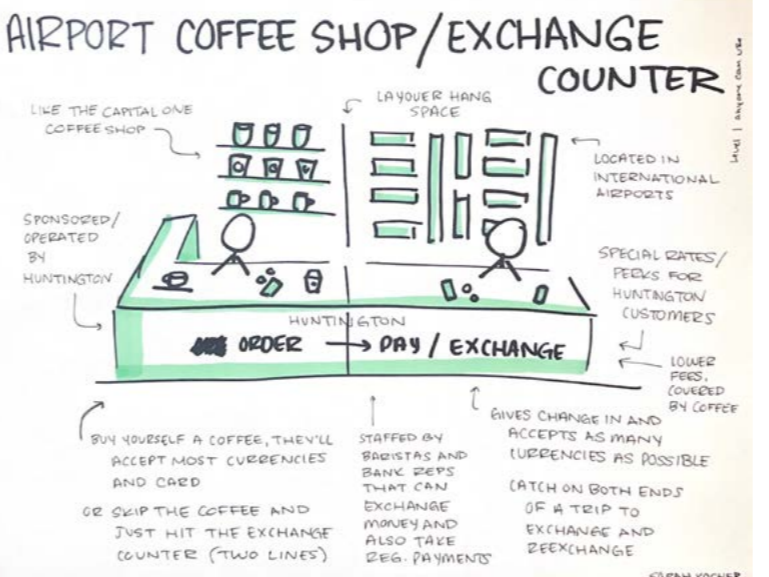 AIRPORT COFFEE SHOP/EXCHANGE
COUNTER
Level 1 anyone can use
LIKE THE CAPITAL ONE
COFFEE SHOP
LAYOVER HANG
SPACE
LOCATED IN
INTERNATIONAL
AIRPORTS
SPONSORED/
OPERATED
BY
HUNTINGTON
SPECIAL RATES/
PERKS FOR
HUNTINGTON
CUSTOMERS
HUNTINGTON
ORDER → PAY / EXCHANGE
LOWER
FEES,
COVERED
BY COFFEE
BUY YOURSELF A COFFEE, THEY'LL
ACCEPT MOST CURRENCIES
AND CARD
OR SKIP THE COFFEE AND
JUST HIT THE EXCHANGE
COUNTER (TWO LINES)
STAFFED BY
BARISTAS AND
BANK REPS
THAT CAN
EXCHANGE
MONEY AND
ALSO TAKE
REG. PAYMENTS
GIVES CHANGE IN AND
ACCEPTS AS MANY
CURRENCIES AS POSSIBLE
CATCH ON BOTH ENDS
OF A TRIP TO
EXCHANGE AND
REEXCHANGE
SARAH